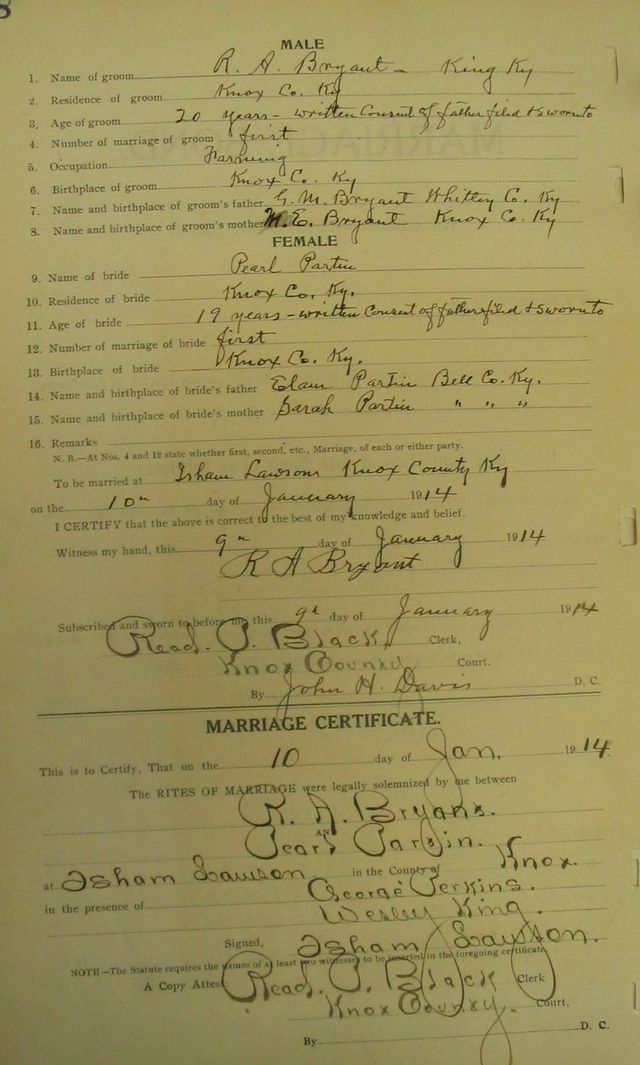 8
MALE
1. Name of groom R. A. Bryant - King Ky
2. Residence of groom Knox Co. Ky
3. Age of groom 20 years - written Consent of father filed & sworn to
4. Number of marriage of groom first
5. Occupation Farming
6. Birthplace of groom Knox Co. Ky
7. Name and birthplace of groom's father G. M. Bryant Whitley Co. Ky
8. Name and birthplace of groom's mother M. E. Bryant Knox Co. Ky
FEMALE
9. Name of bride Pearl Partin
10. Residence of bride Knox Co. Ky.
11. Age of bride 19 years - written Consent of father filed & sworn to
12. Number of marriage of bride first
13. Birthplace of bride Knox Co. Ky.
14. Name and birthplace of bride's father Elam Partin Bell Co. Ky.
15. Name and birthplace of bride's mother Sarah Partin " " "
16. Remarks
N. B.—At Nos. 4 and 12 state whether first, second, etc., Marriage, of each or either party.
To be married at Isham Lawsons Knox County Ky
on the 10th day of January 1914
I CERTIFY that the above is correct to the best of my knowledge and belief.
Witness my hand, this 9th day of January 1914
R A Bryant
Subscribed and sworn to before me this 9th day of January 1914
Read. P. Black, Clerk,
Knox County Court.
By John H. Davis D. C.
MARRIAGE CERTIFICATE.
This is to Certify, That on the 10 day of Jan. 1914.
The RITES OF MARRIAGE were legally solemnized by me between
R. A. Bryans.
AND
Pearl Partin.
at Isham Lawson in the County of Knox.
in the presence of George Perkins.
Wesley King.
Signed, Isham Lawson.
NOTE—The Statute requires the names of at least two witnesses to be inserted in the foregoing certificate
A Copy Attest Read. P. Black Clerk
Knox County. Court,
By D. C.